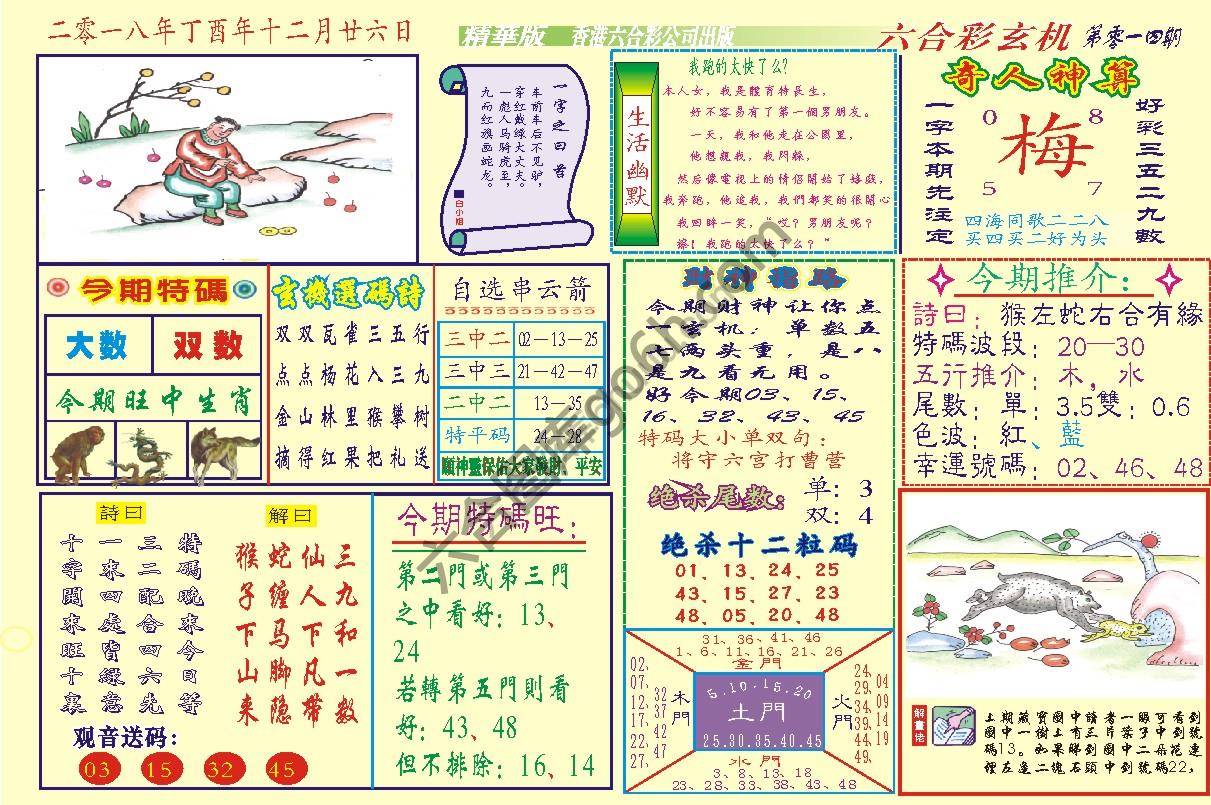 二零一八年丁酉年十二月廿六日
精華版 香港六合彩公司出版
六合彩玄机 第零一四期
一字之曰首
车前车后不见驴，
穿红戴绿大丈夫。
一彪人马骑虎至，
九面红旗画蛇龙。
白小姐
生活幽默
我跑的太快了么？
本人女，我是體育特長生，
好不容易有了第一個男朋友。
一天，我和他走在公園里，
他想親我，我閃躲，
然后像電視上的情侶開始了嬉戲，
我奔跑，他追我，我們都笑的很開心
我回眸一笑，"哎？男朋友呢？
擦！我跑的太快了么？"
奇人神算
一字本期先注定
0 8
梅
5 7
好彩三五二九數
四海同歌二二八
买四买二好为头
今期特碼
大数 双数
今期旺中生肖
玄機選碼詩
双双瓦雀三五行
点点杨花入三九
金山林里猴攀树
摘得红果把礼送
自选串云箭
三中二 02－13－25
三中三 21－42－47
二中二 13－35
特平码 24－28
願神靈保佑大家發財、平安
財神密路
今期财神让你点
一玄机：单数五
七两头重，是八
是九看无用。
好今期03、15、
16、32、43、45
特码大小单双句：
将守六宫打曹营
绝杀尾数：
单：3
双：4
绝杀十二粒码
01、13、24、25
43、15、27、23
48、05、20、48
今期推介：
詩曰：猴左蛇右合有緣
特碼波段：20—30
五行推介：木，水
尾數：單：3.5雙：0.6
色波：紅、藍
幸運號碼：02、46、48
詩曰
特碼晚來今日等
三二配合四六先
一來四處皆緣意
十字開來旺十裏
解曰
三九和一数
仙人下凡带
蛇缠马脚隐
猴子下山来
观音送码：
03 15 32 45
今期特碼旺：
第二門或第三門
之中看好：13、
24
若轉第五門則看
好：43、48
但不排除：16、14
31、36、41、46
1、6、11、16、21、26
金門
02、07、12、17、22、27、
32、37、42、47
木門
5.10.15.20
土門
25.30.35.40.45
火門
24、29、34、39、44、49、
04、09、14、19
水門
3、8、13、18
23、28、33、38、43、48
解畫佬
上期藏寶圖中讀者一眼可看到
圖中一樹上有三片葉子中到號
碼13。如果睇到圖中二朵花連
埋左邊二塊石頭中到號碼22，
六合图库go66m.com